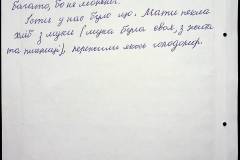 багато, бо не можна.
Їсти у нас було що. Мати пекла
хліб з муки (мука була своя, з жита
та пшениці), пережили якось голодомор.